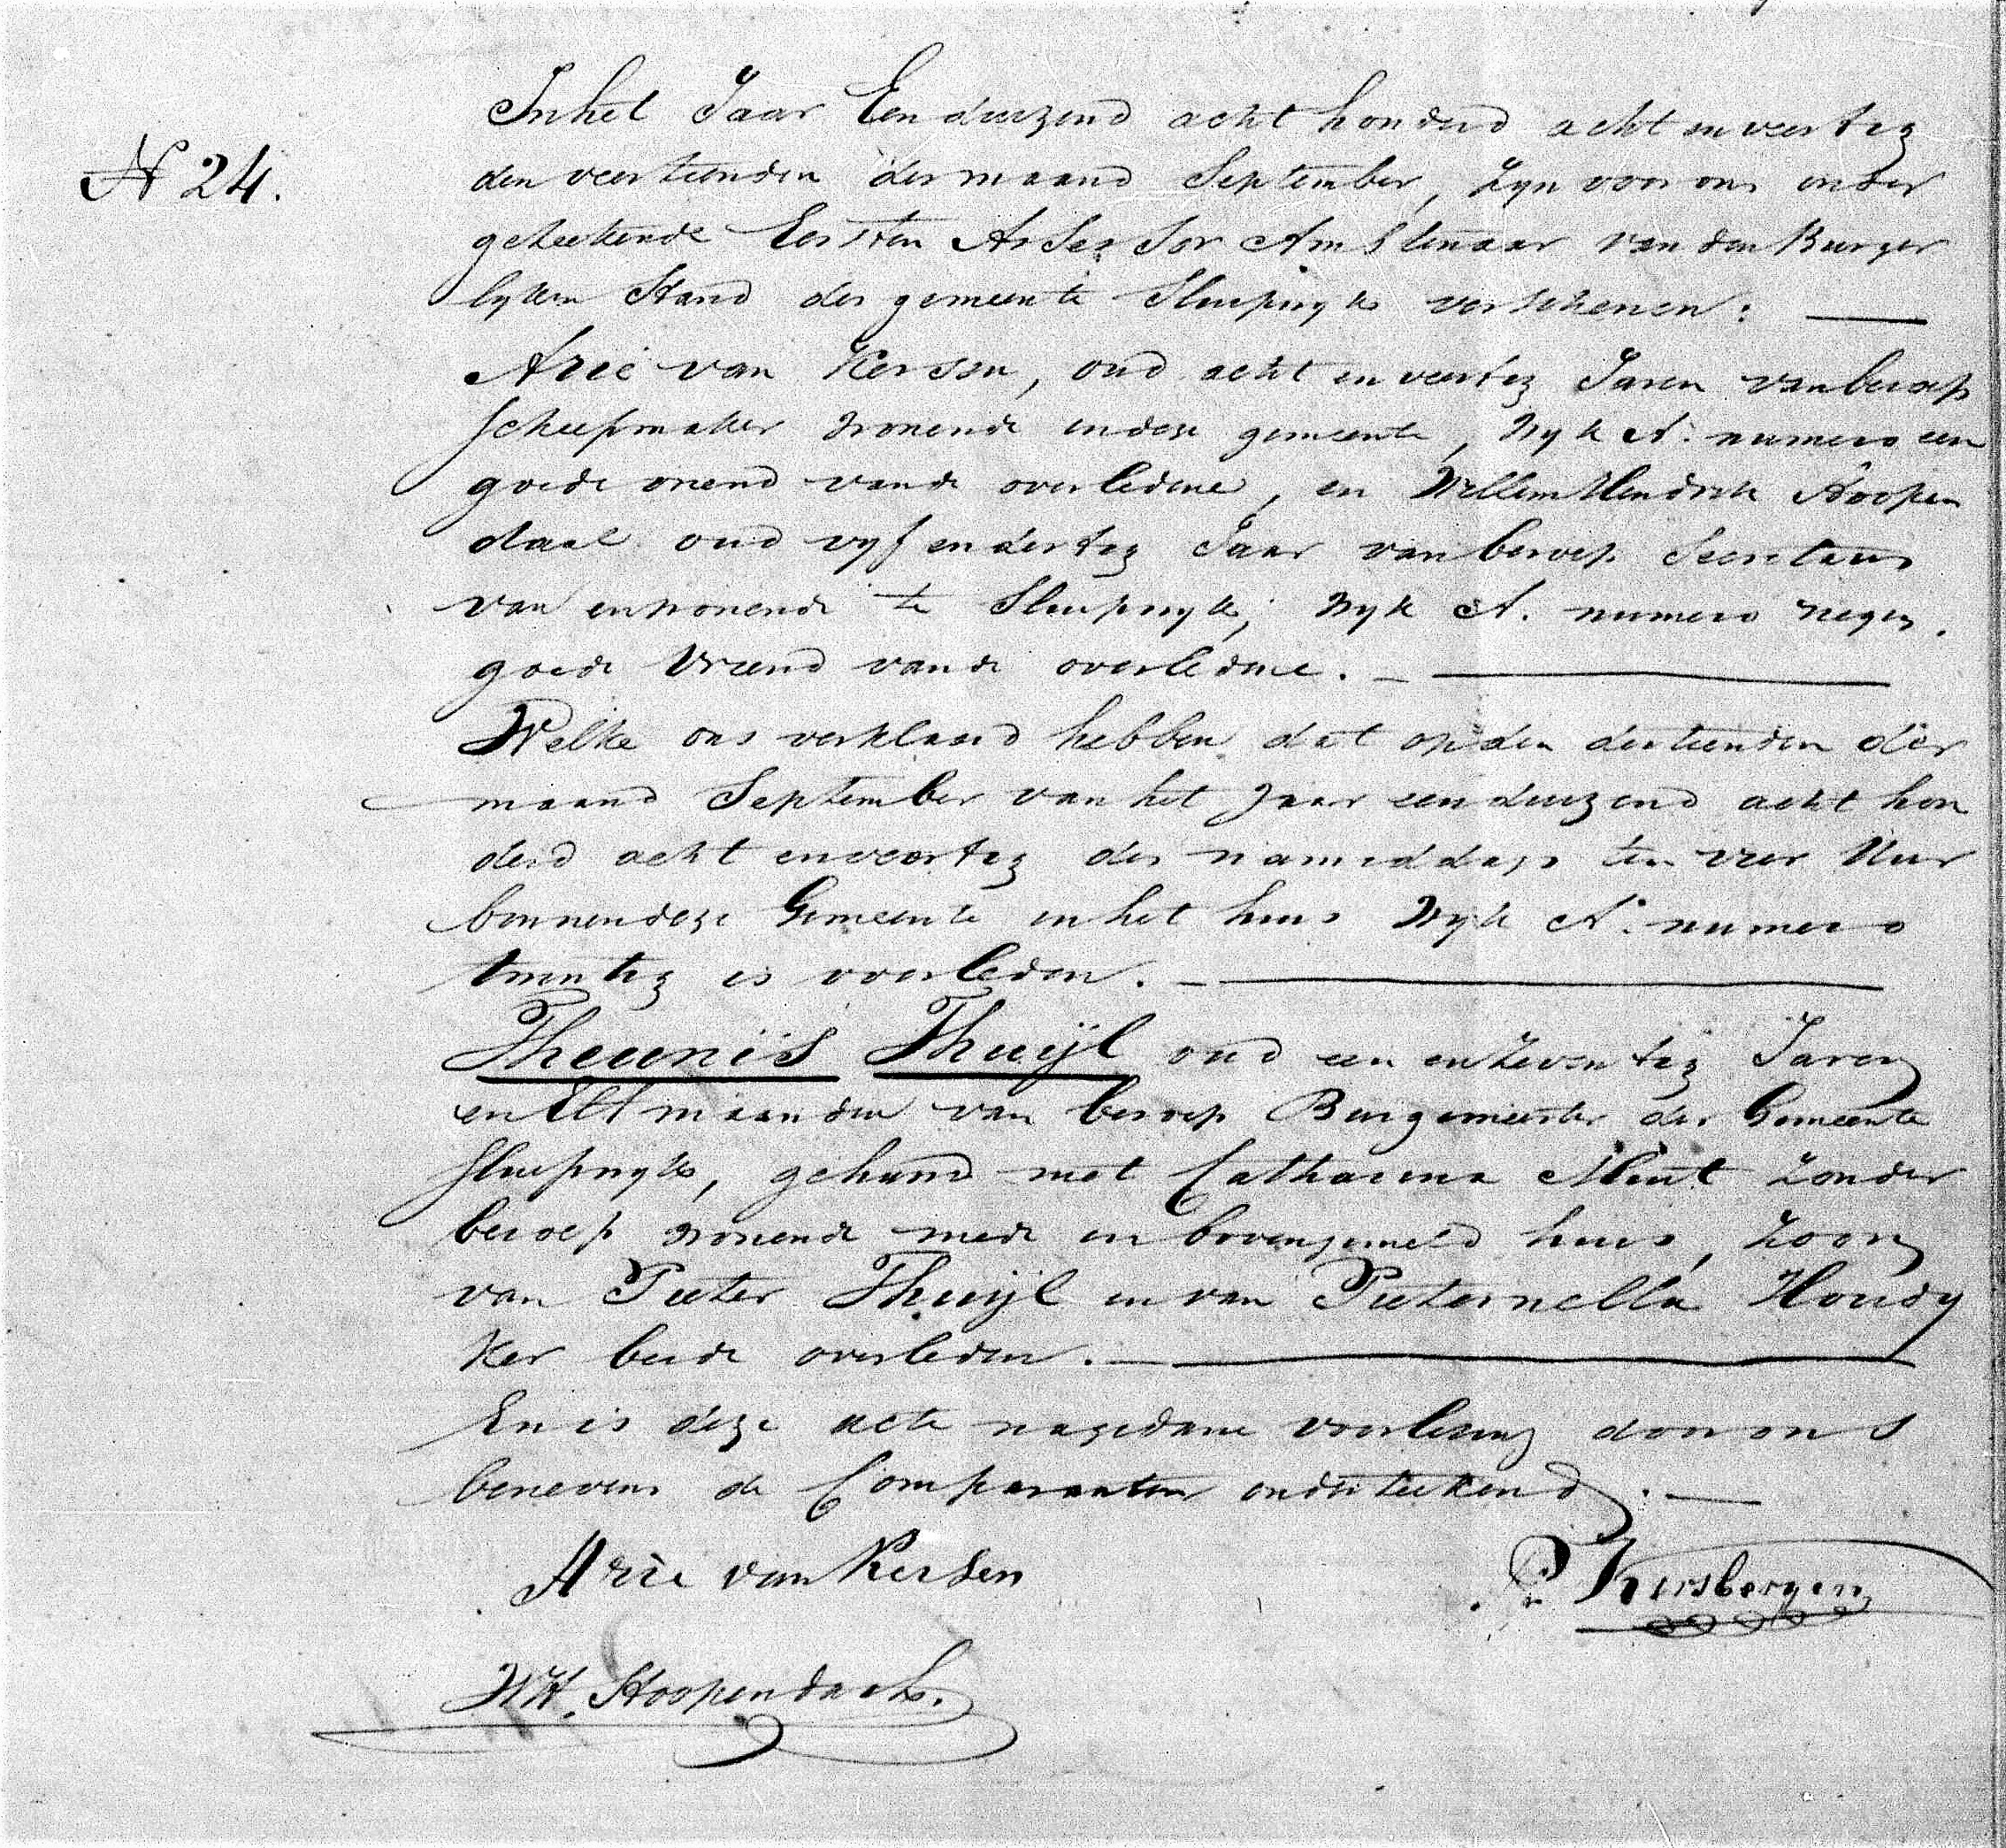 In het Jaar Een duizend acht honderd acht en veertig
N 24.
den veertienden der maand September, zyn voor ons onder
geteekende Eersten Assessor Amstenaar van den Burger
lyken Stand der gemeente Sluipwyk verschenen:
Arie van Kersen, oud acht en veertig Jaren van beroep
scheepmaker wonende in deze gemeente, Wyk A. numero een
goede vriend van de overledene, en Willem Hendrik Hoopen
daal oud vyf en dertig Jaar van beroep Secretaris
van en wonende te Sluipwyk, Wyk A. numero negen.
goede Vriend van de overledene.
Welke ons verklaard hebben dat op den dertienden der
maand September van het Jaar een duizend acht hon
derd acht en veertig des namiddags ten vier Uur
binnen deze Gemeente in het huis Wyk A. numero
twintig is overleden.
Theunis Thuijl oud een en zeventig Jaren
en Elf maanden van beroep Burgemeester der Gemeente
Sluipwyk, gehuwd met Catharina Mint zonder
beroep wonende mede in bovengemeld huis, Zoon
van Pieter Thuijl en van Pieternella Houdy
ker beide overleden.
En is deze acte na gedane voorlezing door ons
benevens de Comparanten onderteekend.
Arie van Kersen
P. Kersbergen
WH. Hoopendaal.